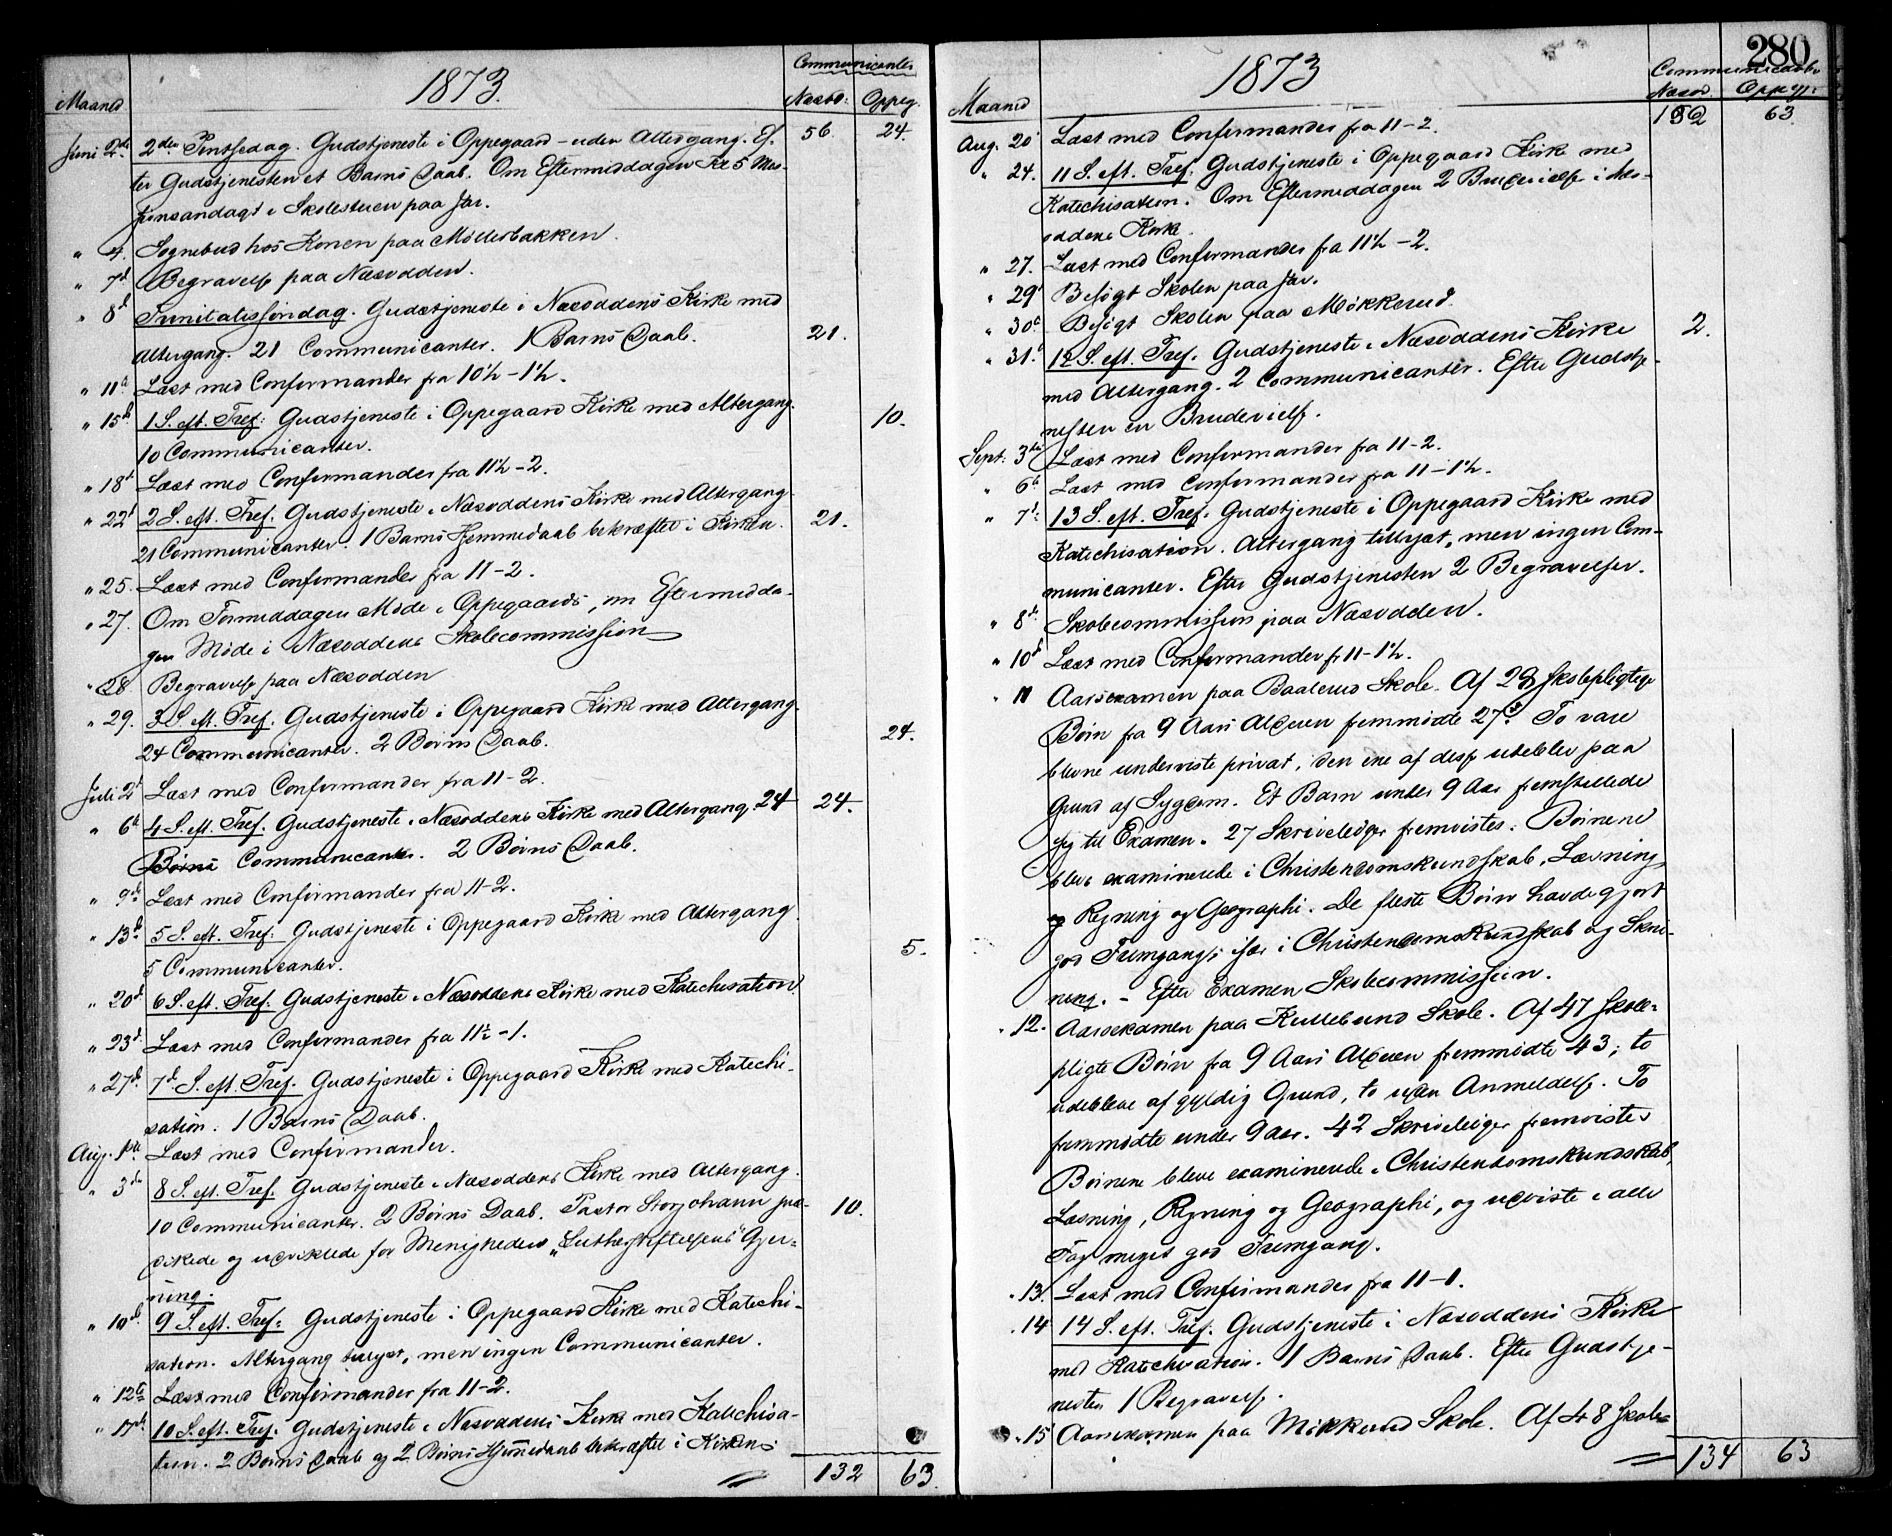 1873.
Communicanter
Maaned
Næsod:
Oppeg.
Juni 2den 2den Pintsedag. Gudstjeneste i Oppegaard - uden Altergang. Ef-
56. 24.
ter Gudstjenesten et Barns Daab. Om Eftermiddagen Kl. 5 Mis-
sionsandagt i Skolestuen paa Jar.
" 4. Sognebud hos Konen paa Møllerbakken.
" 7d Begravelse paa Næsodden.
" 8d Trinitatissøndag. Gudstjeneste i Næsoddens Kirke med
Altergang. 21 Communicanter. 1 Barns Daab.
21.
" 11d Læst med Confirmander fra 10½-1½.
" 15d 1 S. eft. Tref. Gudstjeneste i Oppegaard Kirke med Altergang.
10.
10 Communicanter.
" 18d Læst med Confirmander fra 11½-2.
" 22d 2 S. eft. Tref. Gudstjeneste i Næsoddens Kirke med Altergang.
21 Communicanter. 1 Barns Hjemmedaab bekræftet i Kirken.
21.
" 25. Læst med Confirmander fra 11-2.
" 27. Om Formiddagen Møde i Oppegaards, om Eftermidda-
gen Møde i Næsoddens Skolecommission
" 28 Begravelse paa Næsodden
" 29. 3 S. eft. Tref. Gudstjeneste i Oppegaard Kirke med Altergang.
24 Communicanter. 2 Børns Daab.
24.
Juli 2d Læst med Confirmander fra 11-2.
" 6d 4 S. eft. Tref. Gudstjeneste i Næsoddens Kirke med Altergang. 24
24.
Børns Communicanter. 2 Børns Daab.
" 9d Læst med Confirmander fra 11-2.
" 13d 5 S. eft. Tref. Gudstjeneste i Oppegaard Kirke med Altergang
5 Communicanter.
5.
" 20d 6 S. eft. Tref. Gudstjeneste i Næsoddens Kirke med Katechisation.
" 23d Læst med Confirmander fra 11½-1.
" 27d 7d S. eft. Tref. Gudstjeneste i Oppegaard Kirke med Katechi-
sation. 1 Barns Daab.
Aug. 1ste Læst med Confirmander.
" 3die 8 S. eft. Tref. Gudstjeneste i Næsoddens Kirke med Altergang.
10 Communicanter. 2 Børns Daab. Pastor Storjohann præ-
10.
dikede og udviklede for Menigheden "Lutherstiftelsens" Gjer-
ning.
" 10d. 9 S. eft. Tref. Gudstjeneste i Oppegaard Kirke med Katechi-
sation. Altergang tillyst, men ingen Communicanter.
" 12te Læst med Confirmander fra 11-2.
" 17de 10 S. eft. Tref. Gudstjeneste i Næsoddens Kirke med Katechisa-
tion. 2 Børns Daab og 2 Børns Hjemmedaab bekræftet i Kirken.
132 63.
280
1873
Communicanter
Maaned
Næsod.
Oppeg.
132 63
Aug. 20 Læst med Confirmander fra 11-2.
" 24. 11 S. eft. Tref. Gudstjeneste i Oppegaard Kirke med
Katechisation. Om Eftermiddagen 2 Brudevielser i Næs-
oddens Kirke.
" 27. Læst med Confirmander fra 11½-2.
" 29d Besøgt Skolen paa Jar.
" 30d Besøgt Skolen paa Møkkerud.
" 31d 12 S. eft. Tref. Gudstjeneste i Næsoddens Kirke
2.
med Altergang. 2 Communicanter. Efter Gudstje-
nesten en Brudevielse.
Sept. 3die Læst med Confirmander fra 11-2.
" 6d Læst med Confirmander fra 11-1½.
" 7d 13 S. eft. Tref. Gudstjeneste i Oppegaard Kirke med
Katechisation. Altergang tillyst, men ingen Com-
municanter. Efter Gudstjenesten 2 Begravelser.
" 8d Skolecommission paa Næsodden.
" 10d Læst med Confirmander fr 11-1½.
" 11 Aarsexamen paa Baalerud Skole. Af 29 skolepligtige
Børn fra 9 Aars Alderen fremmødte 27. To vare
blevne underviste privat, den ene af disse udeblev paa
Grund af Sygdom. Et Barn under 9 Aar fremstillede
sig til Examen. 27 Skrivebøger fremvistes. Børnene
bleve examinerede i Christendomskundskab, Læsning
og Regning og Geographi. De fleste Børn havde gjort
god Fremgang, især i Christendomskundskab og Skriv-
ning. - Efter Examen Skolecommission.
" 12. Aarsexamen paa Kullebund Skole. Af 47 skole-
pligte Børn fra 9 Aars Alderen fremmødte 43; to
udebleve af gyldig Grund, to uden Anmeldelse. To
fremmødte under 9 Aar. 42 Skrivebøger fremvistes
Børnene bleve examinerede i Christendomskundskab,
Læsning, Regning og Geographi, og udviste i alle
Fag meget god Fremgang.
" 13. Læst med Confirmander fra 11-1.
" 14 14 S. eft. Tref. Gudstjeneste i Næsoddens Kirke
med Katechisation. 1 Barns Daab. Efter Gudstje-
nesten 1 Begravelse.
" 15 Aarsexamen paa Møkkerud Skole. Af 48 Skole-
134 63